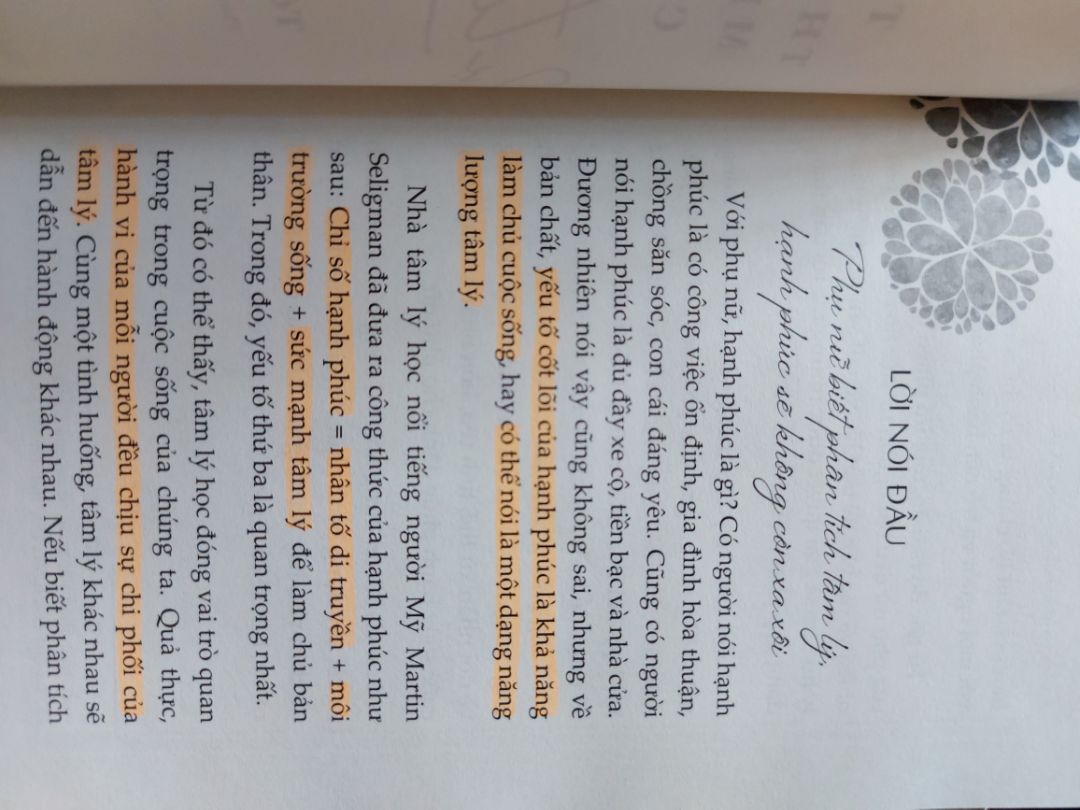 LỜI NÓI ĐẦU
Phụ nữ biết phân tích tâm lý,
hạnh phúc sẽ không còn xa xôi
Với phụ nữ, hạnh phúc là gì? Có người nói hạnh
phúc là có công việc ổn định, gia đình hòa thuận,
chồng săn sóc, con cái đáng yêu. Cũng có người
nói hạnh phúc là đủ đầy xe cộ, tiền bạc và nhà cửa.
Đương nhiên nói vậy cũng không sai, nhưng về
bản chất, yếu tố cốt lõi của hạnh phúc là khả năng
làm chủ cuộc sống, hay có thể nói là một dạng năng
lượng tâm lý.
Nhà tâm lý học nổi tiếng người Mỹ Martin
Seligman đã đưa ra công thức của hạnh phúc như
sau: Chỉ số hạnh phúc = nhân tố di truyền + môi
trường sống + sức mạnh tâm lý để làm chủ bản
thân. Trong đó, yếu tố thứ ba là quan trọng nhất.
Từ đó có thể thấy, tâm lý học đóng vai trò quan
trọng trong cuộc sống của chúng ta. Quả thực,
hành vi của mỗi người đều chịu sự chi phối của
tâm lý. Cùng một tình huống, tâm lý khác nhau sẽ
dẫn đến hành động khác nhau. Nếu biết phân tích